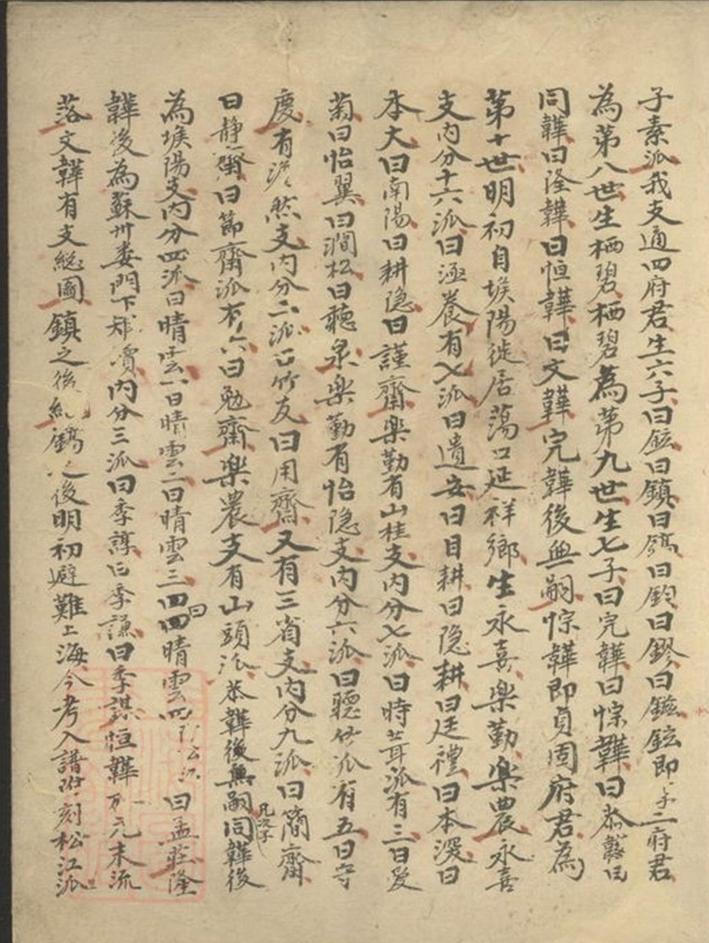 子素派我支通四府君生六子曰鉉曰鎮曰鎬曰鈞曰鏐曰鎰鉉即子二府君
為第八世生栖碧栖碧為第九世生七子曰完韡曰悰韡曰恭韡曰
同韡曰隆韡曰恒韡曰文韡完韡後無嗣悰韡即貞固府君為
第十世明初自堠陽徙居蕩口延祥鄉生永喜樂勤樂農永喜
支内分十六派曰逕養有七派曰遺安曰目耕曰隐耕曰廷禮曰本深曰
本大曰南陽曰耕隐曰謹齋樂勤有山桂支内分七派曰時葺派有三曰愛
菊曰怡翼曰澗松曰聽泉樂勤有怡隐支内分六派曰聽竹派有五曰守
慶有澹然支内分二派曰竹友曰用齋又有三省支内分九派曰簡齋
曰静齋曰節齋派有六曰勉齋樂農支有山頭派恭韡後無嗣同韡後
為堠陽支内分四派曰晴雲一曰晴雲二曰晴雲三曰晴雲四曰孟莊隆
韡後為蘇州婁門下郑瀆内分三派曰季諄曰季謙曰季謀恒韡元末流
落文韡有支総圖鎮之後鎬之後明初避難上海今考入譜附刻松江派